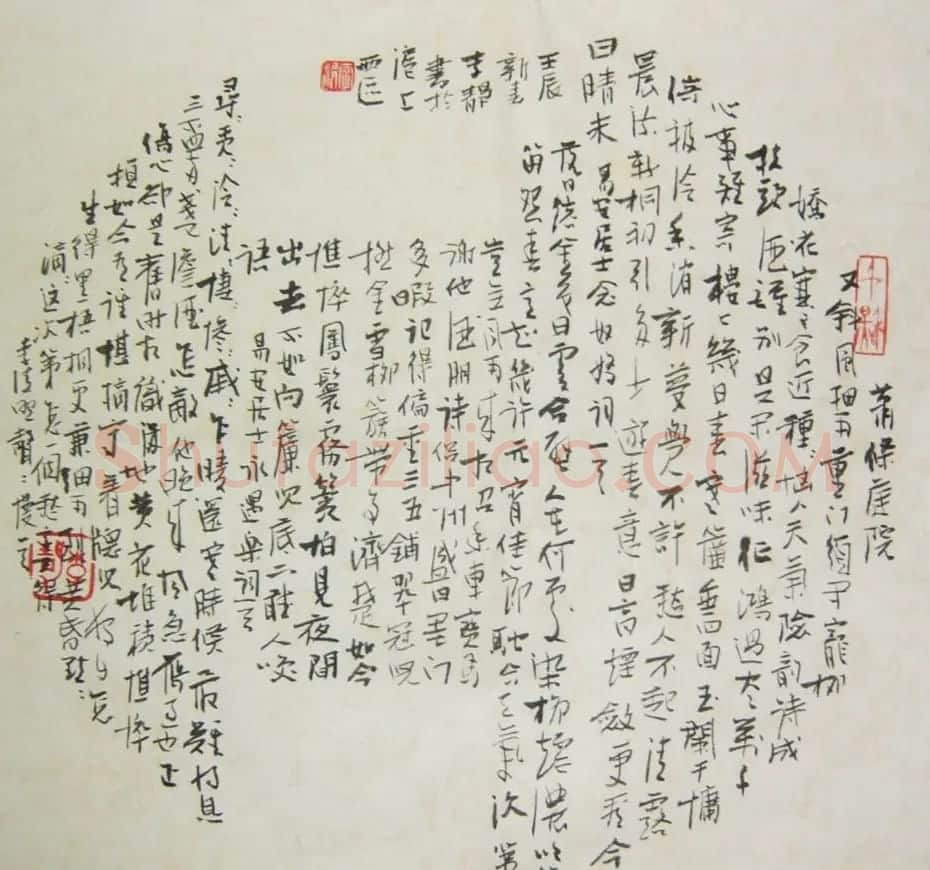 蕭條庭院
又斜風細雨重門須閉寵柳
嬌花寒食近種種惱人天氣險韻詩成
扶頭酒醒別是閑滋味征鴻過盡萬千
心事難寄樓上幾日春寒簾垂四面玉闌干慵
倚被冷香消新夢覺不許愁人不起清露
晨流新桐初引多少遊春意日高煙斂更看今
日晴未 易安居士念奴嬌詞一首
落日熔金暮雲合璧人在何處染柳煙濃吹
笛怨春意知幾許元宵佳節融和天氣次第
豈無風雨来相召香車寶馬
謝他酒朋詩侶中州盛日閨門
多暇記得偏重三五鋪翠冠兒
撚金雪柳簇帶爭濟楚如今
憔悴風鬟霧鬢怕見夜間
出去不如向簾兒底下聽人笑
語 易安居士永遇樂詞一首
尋:覓:冷:清:悽:慘:戚:乍暖還寒時候最難將息
三盃兩盞淡酒怎敵他晚来風急雁過也正
傷心却是舊時相識滿地黃花堆積憔悴
損如今有誰堪摘守着窗兒獨自怎
生得黑梧桐更兼細雨到黃昏點:
滴:這次第怎一個愁字了得
李清照聲:慢一首
壬辰
新春
李靜
書於
滬上
西區
Shufaziliao.COM